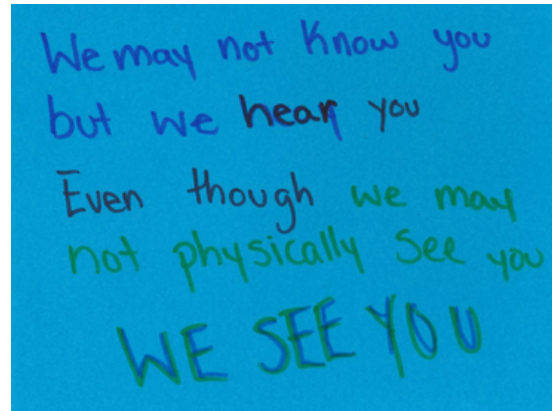 We may not know you
but we hear you
Even though we may
not physically see you
WE SEE YOU